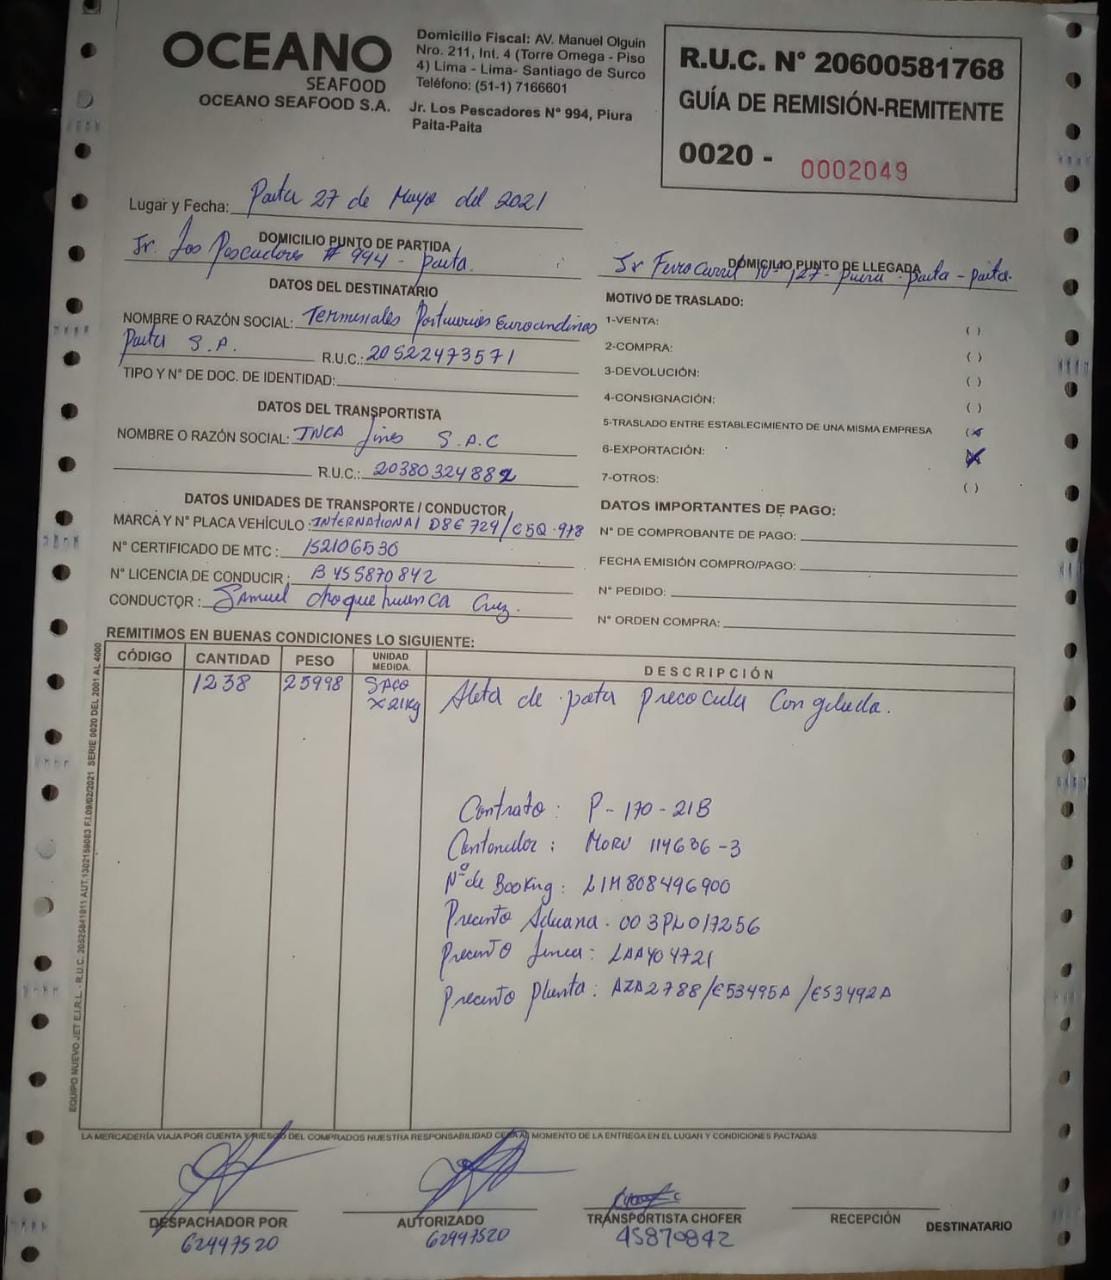 OCEANO
SEAFOOD
OCEANO SEAFOOD S.A.
Domicilio Fiscal: AV. Manuel Olguin
Nro. 211, Int. 4 (Torre Omega - Piso
4) Lima - Lima- Santiago de Surco
Teléfono: (51-1) 7166601
Jr. Los Pescadores N° 994, Piura
Paita-Paita
R.U.C. N° 20600581768
GUÍA DE REMISIÓN-REMITENTE
0020 - 0002049
Lugar y Fecha: Paita 27 de Mayo del 2021
DOMICILIO PUNTO DE PARTIDA
Jr. Los Pescadores # 994 - Paita.
DOMICILIO PUNTO DE LLEGADA
Jr Ferrocarril N° 127 - Piura - Paita - Paita.
DATOS DEL DESTINATARIO
NOMBRE O RAZÓN SOCIAL: Terminales Portuarios Euroandinos
Paita S.A.
R.U.C.: 20522473571
TIPO Y N° DE DOC. DE IDENTIDAD:
DATOS DEL TRANSPORTISTA
NOMBRE O RAZÓN SOCIAL: INCA Lines S.A.C
R.U.C.: 20380324882
DATOS UNIDADES DE TRANSPORTE / CONDUCTOR
MARCA Y N° PLACA VEHÍCULO: INTERNATIONAL D8E 729/C5Q-978
N° CERTIFICADO DE MTC: 152106530
N° LICENCIA DE CONDUCIR: B 455870842
CONDUCTOR: Samuel choquehuanca Cruz.
MOTIVO DE TRASLADO:
1-VENTA: ( )
2-COMPRA: ( )
3-DEVOLUCIÓN: ( )
4-CONSIGNACIÓN: ( )
5-TRASLADO ENTRE ESTABLECIMIENTO DE UNA MISMA EMPRESA
6-EXPORTACIÓN: X
7-OTROS: ( )
DATOS IMPORTANTES DE PAGO:
N° DE COMPROBANTE DE PAGO:
FECHA EMISIÓN COMPRO/PAGO:
N° PEDIDO:
N° ORDEN COMPRA:
REMITIMOS EN BUENAS CONDICIONES LO SIGUIENTE:
CÓDIGO CANTIDAD PESO UNIDAD MEDIDA. DESCRIPCIÓN
1238 25998 SACO x 21Kg Aleta de pota Precocida Congelada.
Contrato: P-170-21B
Contenedor: MORU 114636-3
N° de Booking: LIM808496900
Precinto Aduana. 003PL017256
Precinto Linea: LAA404721
Precinto Planta: AZA2788/E53495A/E53492A
EQUIPO NUEVO JET E.I.R.L. - R.U.C. 20525841011 AUT.1302158083 F.I.09/02/2021 SERIE 0020 DEL 2001 AL 4000
LA MERCADERÍA VIAJA POR CUENTA Y RIESGO DEL COMPRADOS NUESTRA RESPONSABILIDAD CESA AL MOMENTO DE LA ENTREGA EN EL LUGAR Y CONDICIONES PACTADAS
DESPACHADOR POR
62997520
AUTORIZADO
62997520
TRANSPORTISTA CHOFER
45870842
RECEPCIÓN
DESTINATARIO